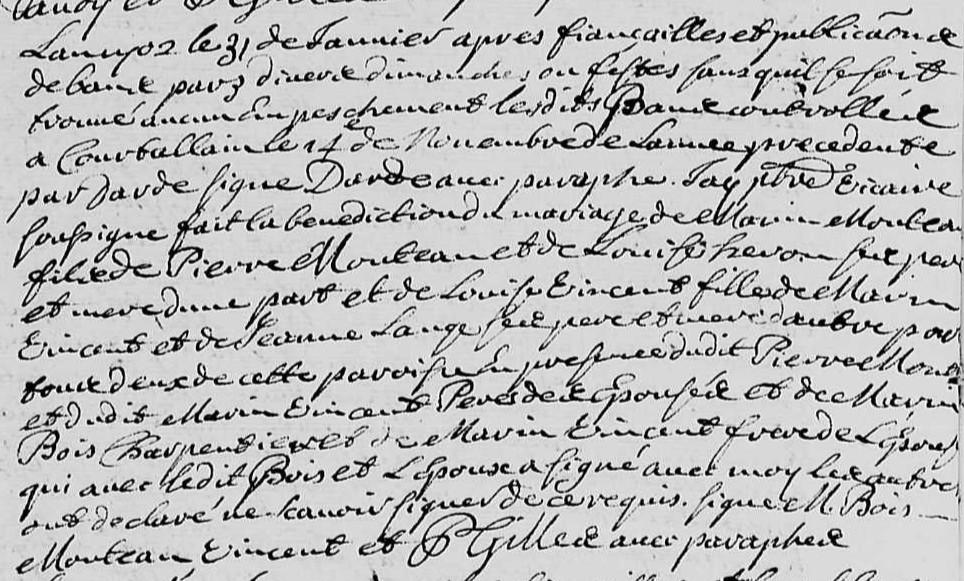 Lan 1702 le 31 de Janvier apres fiançailles et publicaon de
de bans par 3 divers dimanches ou festes sans quil se soit
trouvé aucun Enpeschement lesdits Bans controllés
a Courtallain le 14e de Novembre de Lannee precedente
par Darde signe Darde avec paraphe. Jay ptre Vicaire
soussigne fait la benediction du mariage de Marin Monteau
fils de Pierre Monteau et de Louise heron ses pere
et mere dune part et de Louise Vincent fille de Marin
Vincent et de Jeanne Lange ses pere et mere dautre par
tous deux de cette paroisse En presence dudit Pierre Mont
et dudit Marin Vincent Peres des Epousés et de Marin
Bois Charpentier et de Marin Vincent frere de LEpous
qui avec ledit Bois et LEpoux a signé avec moy les autres
ont declaré ne scavoir signer de ce requis. signe M. Bois
Monteau Vincent et P Gilles avec paraphes